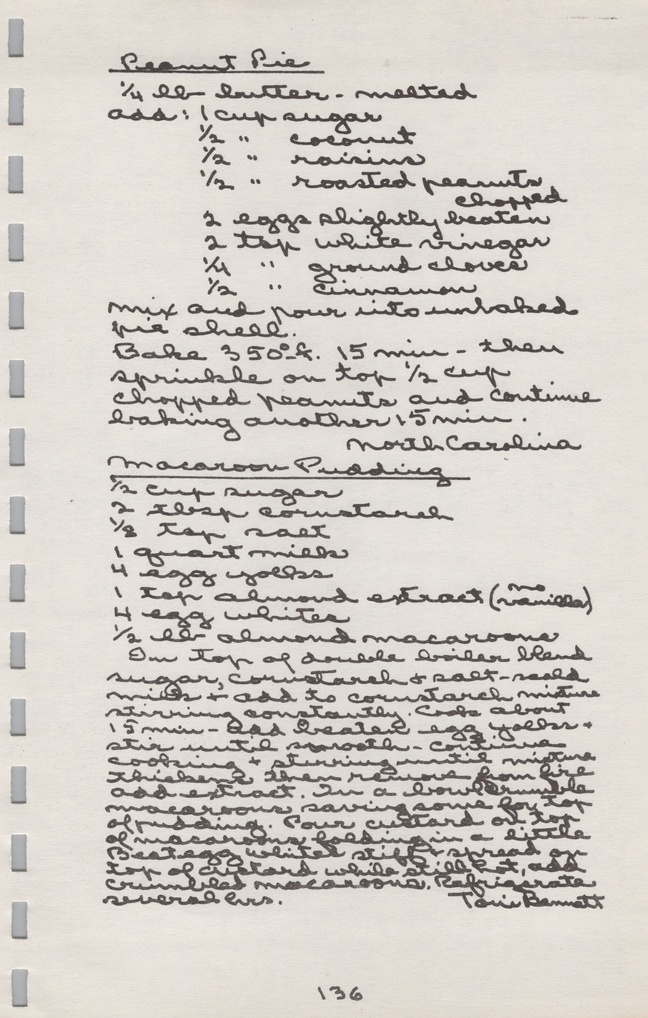 Peanut Pie
1/4 lb butter - melted
add: 1 cup sugar
1/2 " coconut
1/2 " raisins
1/2 " roasted peanuts
chopped
2 eggs slightly beaten
2 tsp white vinegar
1/4 " ground cloves
1/2 " cinnamon
mix and pour into unbaked
pie shell.
Bake 350° f. 15 min - then
sprinkle on top 1/2 cup
chopped peanuts and continue
baking another 15 min.
North Carolina
Macaroon Pudding
1/2 cup sugar
2 tbsp cornstarch
1/8 tsp salt
1 quart milk
4 egg yolks
1 tsp almond extract (no vanilla)
4 egg whites
1/2 lb almond macaroons
In top of double boiler blend
sugar, cornstarch & salt - scald
milk + add to cornstarch mixture
stirring constantly. Cook about
15 min - add beaten egg yolks +
stir until smooth - continue
cooking + stirring until mixture
thickens then remove from fire
add extract. In a bowl crumble
macaroons saving some for top
of pudding. Pour custard on top
of macaroons folding in a little
Beat egg whites stiff + spread on
top of custard while still hot, add
crumbled macaroons. Refrigerate
several hrs. Toni Bennett
136